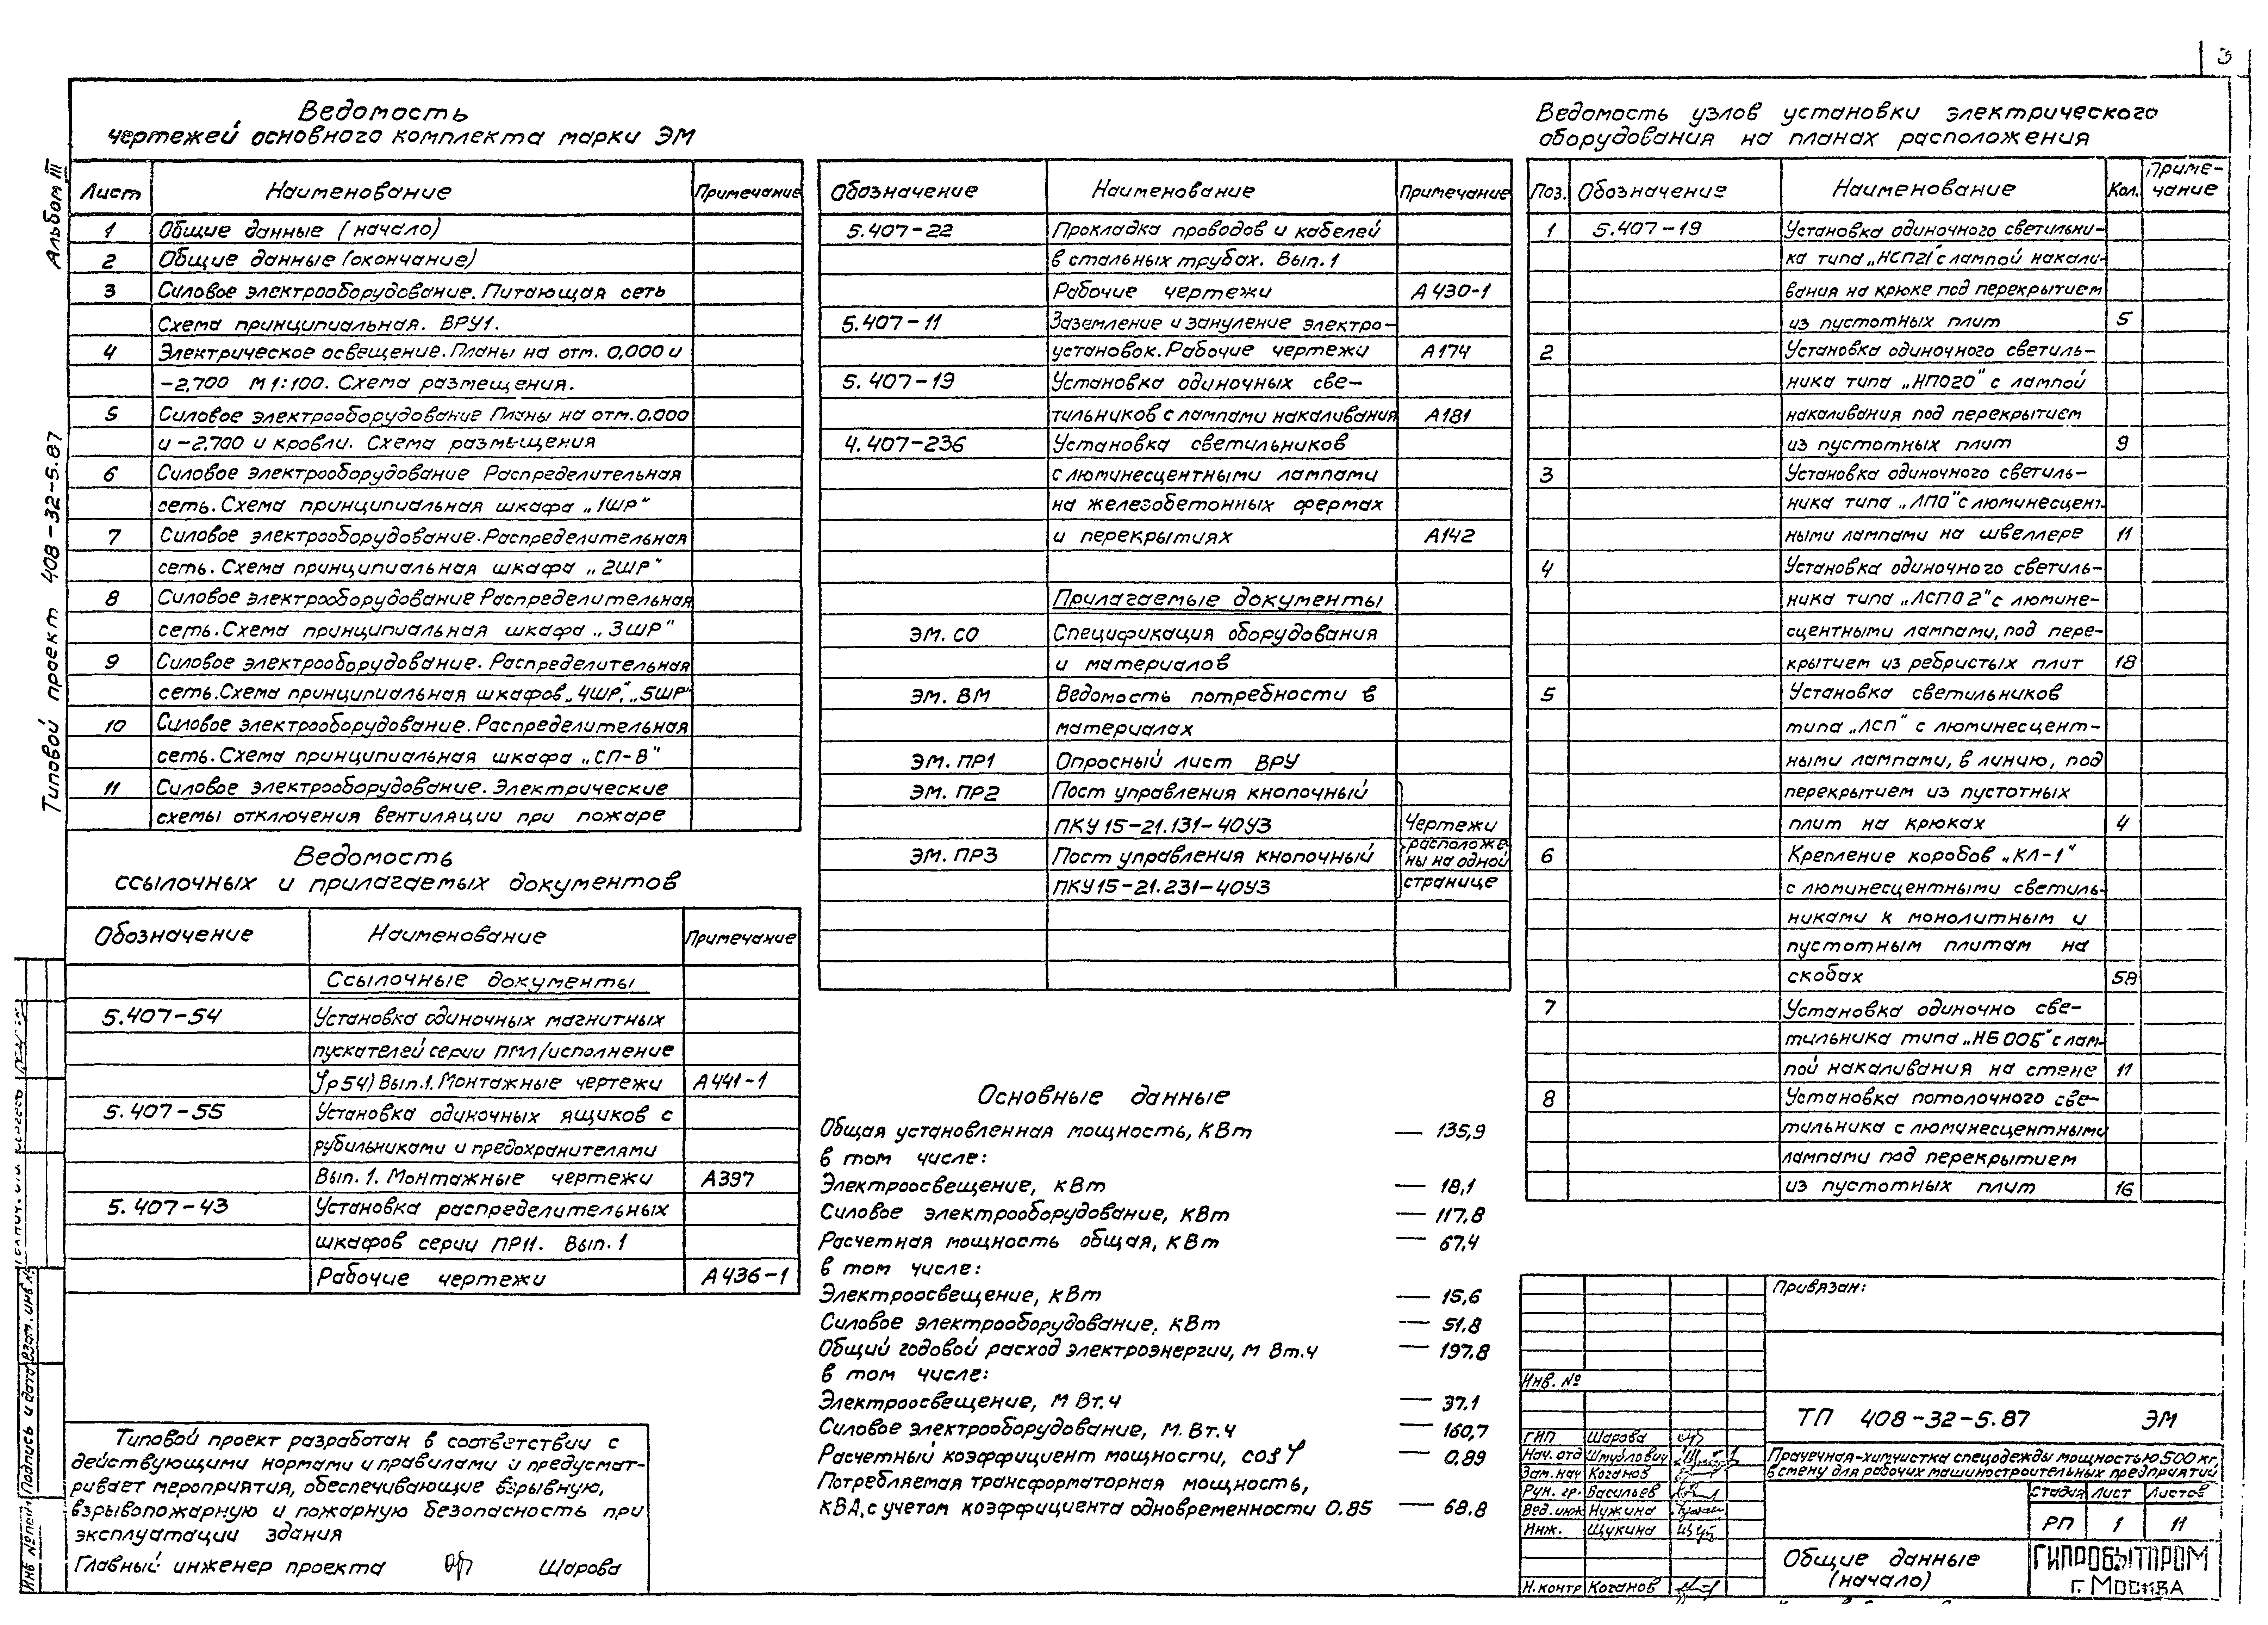 3
Альбом III
Типовой проект 408-32-5.87
Ведомость
чертежей основного комплекта марки ЭМ
Лист Наименование Примечание
1 Общие данные (начало)
2 Общие данные (окончание)
3 Силовое электрооборудование. Питающая сеть
Схема принципиальная. ВРУ1.
4 Электрическое освещение. Планы на отм. 0,000 и
-2,700 М1:100. Схема размещения.
5 Силовое электрооборудование Планы на отм. 0,000
и -2,700 и кровли. Схема размещения
6 Силовое электрооборудование Распределительная
сеть. Схема принципиальная шкафа „1ШР"
7 Силовое электрооборудование. Распределительная
сеть. Схема принципиальная шкафа „2ШР"
8 Силовое электрооборудование Распределительная
сеть. Схема принципиальная шкафа „3ШР"
9 Силовое электрооборудование. Распределительная
сеть. Схема принципиальная шкафов „4ШР", „5ШР"
10 Силовое электрооборудование. Распределительная
сеть. Схема принципиальная шкафа „СП-В"
11 Силовое электрооборудование. Электрические
схемы отключения вентиляции при пожаре
Ведомость
ссылочных и прилагаемых документов
Обозначение Наименование Примечание
Ссылочные документы
5.407-54 Установка одиночных магнитных
пускателей серии ПМЛ (исполнение
Jp54) Вып.1. Монтажные чертежи А441-1
5.407-55 Установка одиночных ящиков с
рубильниками и предохранителями
Вып. 1. Монтажные чертежи А397
5.407-43 Установка распределительных
шкафов серии ПР11. Вып. 1
Рабочие чертежи А436-1
Типовой проект разработан в соответствии с
действующими нормами и правилами и предусмат-
ривает мероприятия, обеспечивающие взрывную,
взрывопожарную и пожарную безопасность при
эксплуатации здания
Главный инженер проекта Шарова
Обозначение Наименование Примечание
5.407-22 Прокладка проводов и кабелей
в стальных трубах. Вып. 1
Рабочие чертежи А430-1
5.407-11 Заземление и зануление электро-
установок. Рабочие чертежи А174
5.407-19 Установка одиночных све-
тильников с лампами накаливания А181
4.407-236 Установка светильников
с люминесцентными лампами
на железобетонных фермах
и перекрытиях А142
Прилагаемые документы
ЭМ. СО Спецификация оборудования
и материалов
ЭМ. ВМ Ведомость потребности в
материалах
ЭМ. ПР1 Опросный лист ВРУ
ЭМ. ПР2 Пост управления кнопочный
ПКУ 15-21.131-40У3 Чертежи
расположе-
ЭМ. ПР3 Пост управления кнопочный ны на одной
ПКУ15-21.231-40У3 странице
Основные данные
Общая установленная мощность, КВт — 135,9
в том числе:
Электроосвещение, кВт — 18,1
Силовое электрооборудование, кВт — 117,8
Расчетная мощность общая, кВт — 67,4
в том числе:
Электроосвещение, кВт — 15,6
Силовое электрооборудование, кВт — 51,8
Общий годовой расход электроэнергии, М Вт.ч — 197,8
в том числе:
Электроосвещение, М Вт.ч — 37,1
Силовое электрооборудование, М.Вт.ч — 160,7
Расчетный коэффициент мощности, cos φ — 0,89
Потребляемая трансформаторная мощность,
КВА, с учетом коэффициента одновременности 0.85 — 68.8
Ведомость узлов установки электрического
оборудования на планах расположения
Поз. Обозначение Наименование Кол. Приме-
чание
1 5.407-19 Установка одиночного светильни-
ка типа „НСП21" с лампой накали-
вания на крюке под перекрытием
из пустотных плит 5
2 Установка одиночного светиль-
ника типа „НПО20" с лампой
накаливания под перекрытием
из пустотных плит 9
3 Установка одиночного светиль-
ника типа „ЛПО" с люминесцент-
ными лампами на швеллере 11
4 Установка одиночного светиль-
ника типа „ЛСПО2" с люмине-
сцентными лампами, под пере-
крытием из ребристых плит 18
5 Установка светильников
типа „ЛСП" с люминесцент-
ными лампами, в линию, под
перекрытием из пустотных
плит на крюках 4
6 Крепление коробов „КЛ-1"
с люминесцентными светиль-
никами к монолитным и
пустотным плитам на
скобах 58
7 Установка одиночно све-
тильника типа „НБ 006" с лам-
пой накаливания на стене 11
8 Установка потолочного све-
тильника с люминесцентными
лампами под перекрытием
из пустотных плит 16
Привязан:
Инв. №
ТП 408-32-5.87 ЭМ
ГИП Шарова
Нач. отд Шмудлович
Зам. нач Коганов
Рук. гр. Васильев
Вед. инж Нужина
Инж. Щукина
Н. контр Коганов
Прачечная-химчистка спецодежды мощностью 500 кг.
в смену для рабочих машиностроительных предприятий
Стадия Лист Листов
РП 1 11
Общие данные
(начало)
ГИПРОБЫТПРОМ
г. Москва
Инв № подл Подпись и дата Взам. инв №